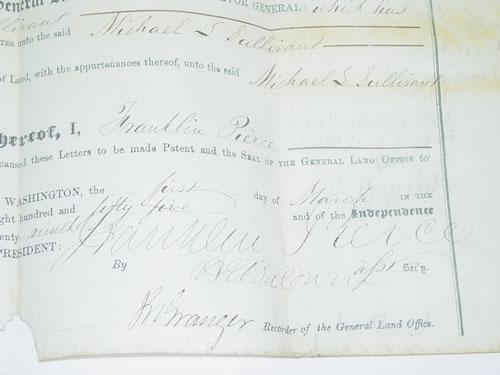 General L
TOR GENERAL: which has
llivant
TES unto the said Michael L Sullivant
of Land, with the appurtenances thereof, unto the said
Michael L Sullivant
hereof, I, Franklin Pierce
caused these Letters to be made Patent and the SEAL OF THE GENERAL LAND OFFICE to
WASHINGTON, the first day of March IN THE
ght hundred and fifty five and of the Independence
enty ninth
PRESIDENT: Franklin Pierce
By asst Sec'y.
Granger Recorder of the General Land Office.